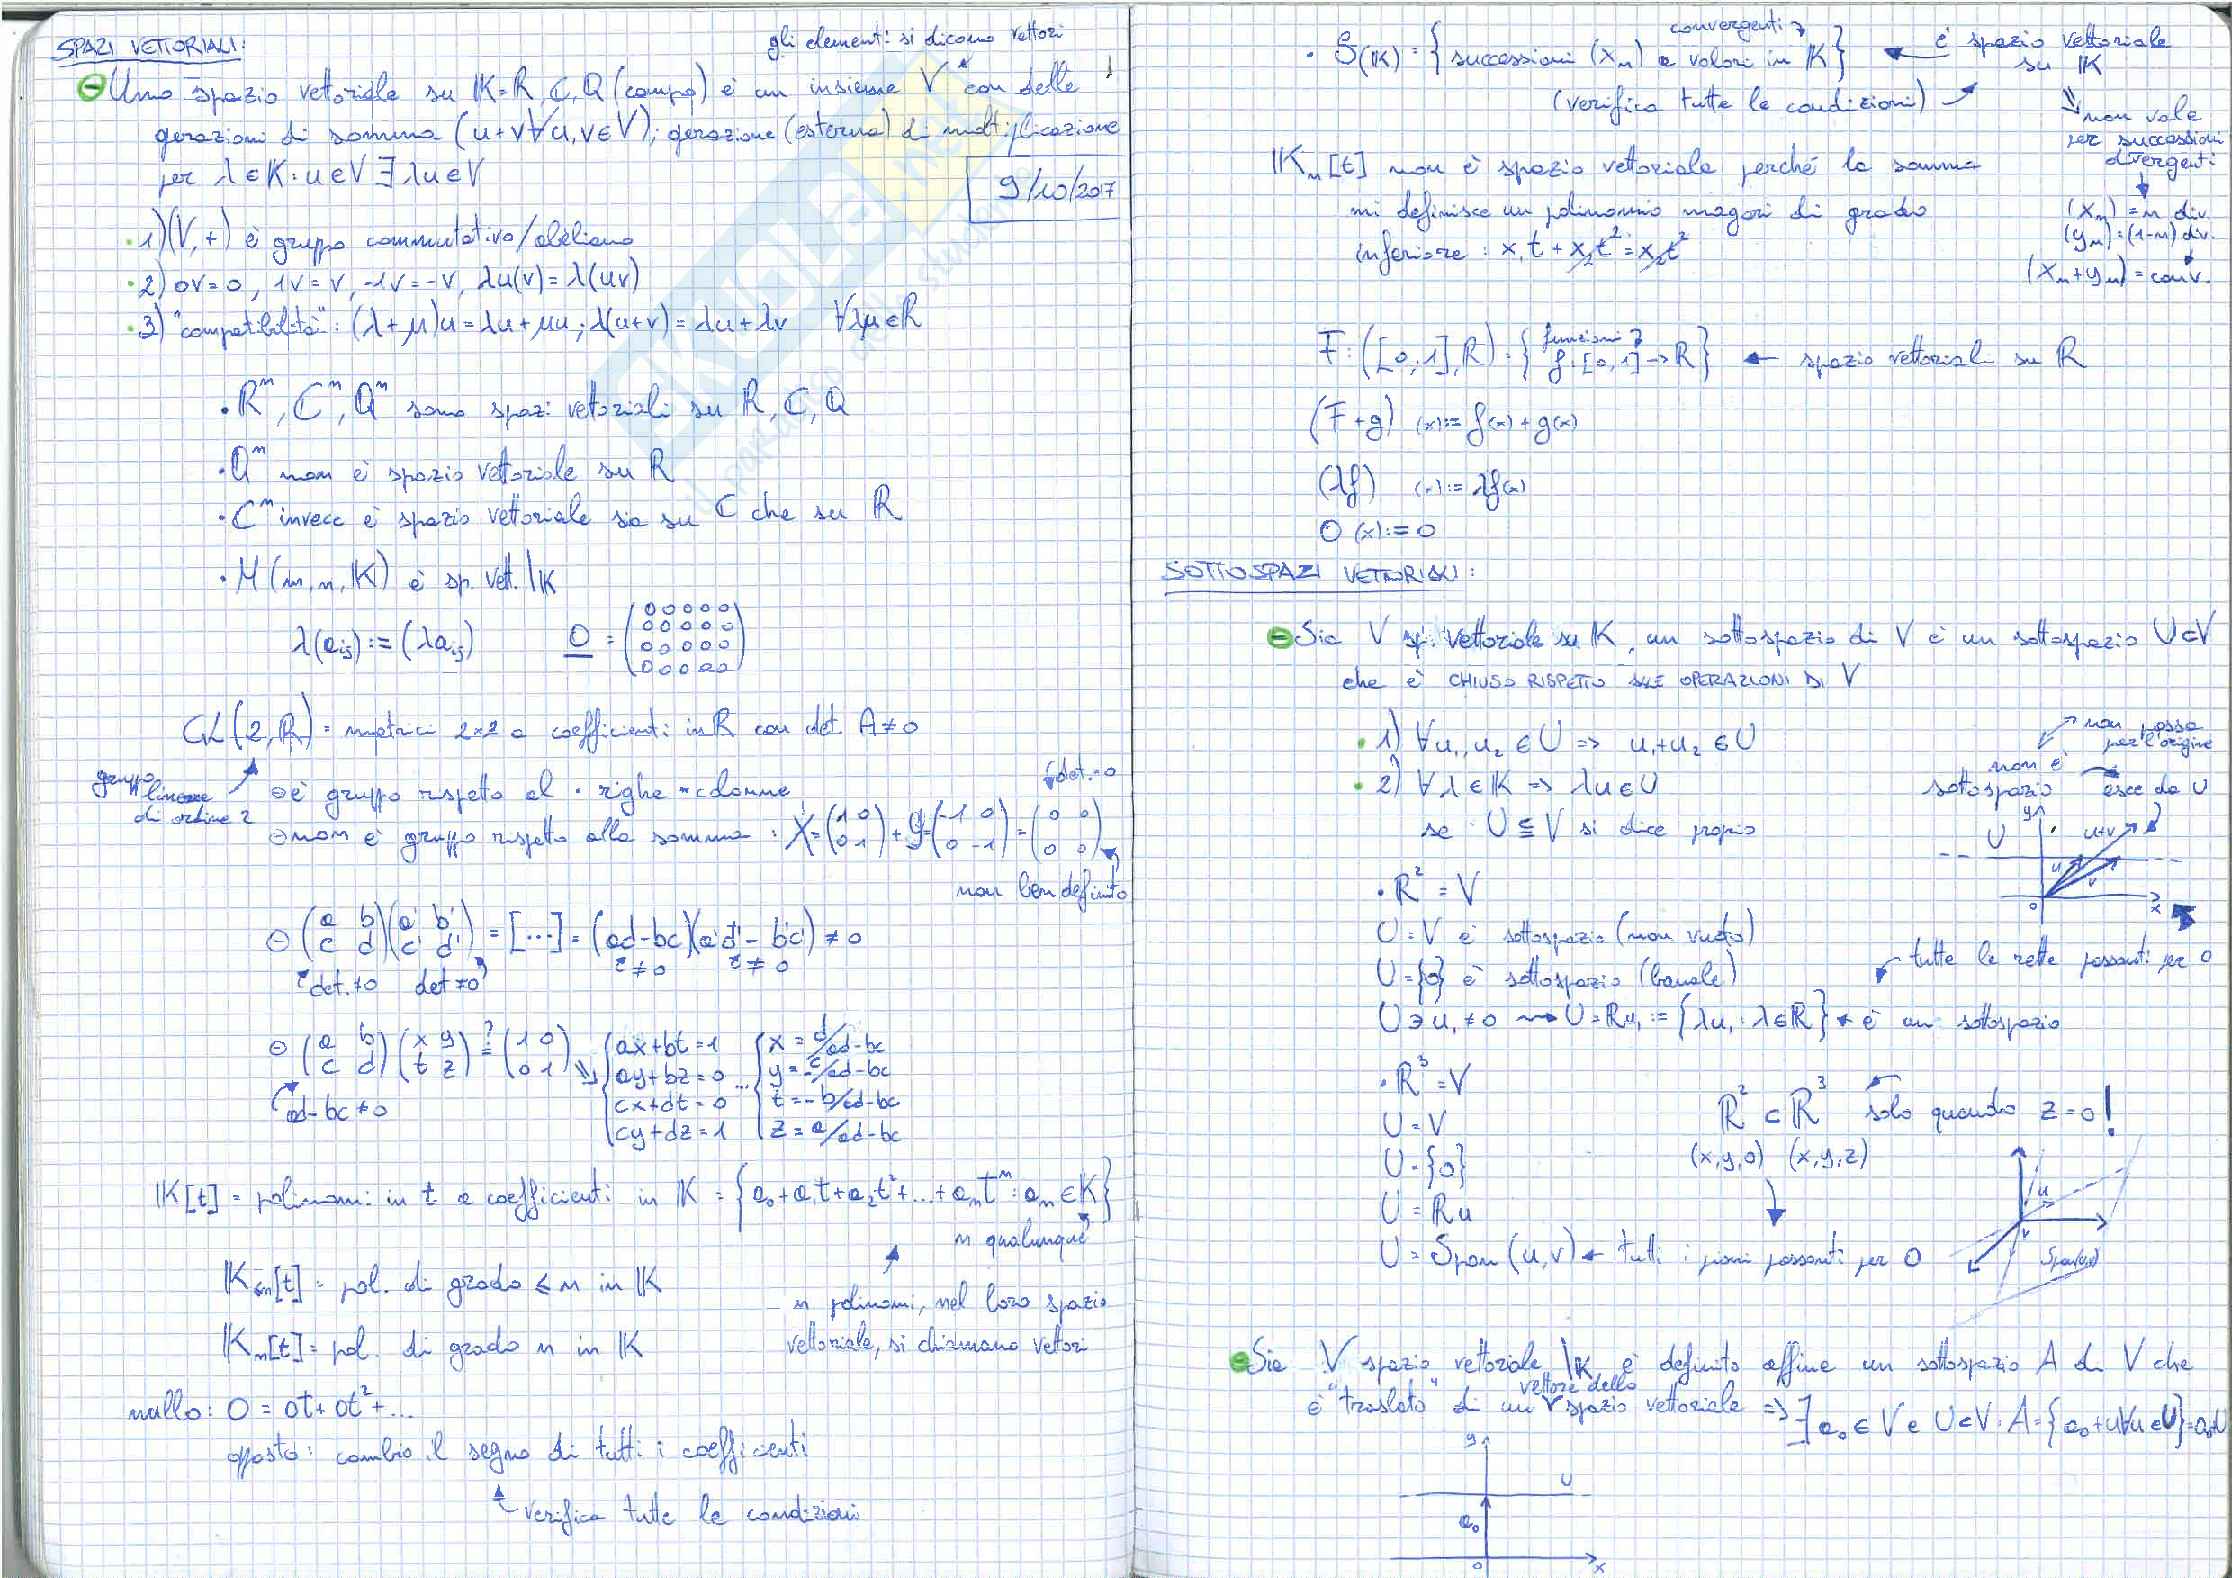 SPAZI VETTORIALI:
gli elementi si dicono vettori
Uno spazio vettoriale su K=R, C, Q (campo) è un insieme V con delle
operazioni di somma (u+v ∀u,v∈V); operazione (esterna) di moltiplicazione
per λ∈K: u∈V ∃ λu∈V
9/10/2017
1) (V,+) è gruppo commutativo/abeliano
2) 0v=0, 1v=v, -1v=-v, λu(v)=λ(uv)
3) "compatibilità": (λ+μ)u=λu+μu; λ(u+v)=λu+λv ∀λμ∈R
• Rⁿ, Cⁿ, Qⁿ sono spazi vettoriali su R, C, Q
• Qⁿ non è spazio vettoriale su R
• Cⁿ invece è spazio vettoriale sia su C che su R
• M(m,n,K) è sp. vett. \K
λ(aij):=(λaij) 0 = (00000
00000
00000
00000)
GL(2,R) = matrici 2×2 a coefficienti in R con det. A≠0
gruppo lineare di ordine 2
è gruppo rispetto al • righe × colonne
det.=0
non è gruppo rispetto alla somma: X=(1 0 / 0 1)+y=(-1 0 / 0 -1)=(0 0 / 0 0)
non ben definito
(a b / c d)(a' b' / c' d') = [...] = (ad-bc)(a'd'-b'c') ≠ 0
det.≠0 det≠0 ≠0 ≠0
(a b / c d)(x y / t z) ?= (1 0 / 0 1)
ad-bc≠0
{ax+bt=1
ay+bz=0
cx+dt=0
cy+dz=1
... {x=d/ad-bc
y=-c/ad-bc
t=-b/ad-bc
z=a/ad-bc
K[t] = polinomi in t a coefficienti in K = {a₀+a₁t+a₂t²+...+aₙtⁿ: aₙ∈K}
n qualunque
K≤n[t] = pol. di grado ≤ n in K
n polinomi, nel loro spazio
vettoriale, si chiamano vettori
Kₙ[t] = pol. di grado n in K
nullo: 0 = 0t+0t²+...
opposto: cambio il segno di tutti i coefficienti
verifica tutte le condizioni
convergenti
• S(K) = {successioni (xₙ) a valori in K} ← è spazio vettoriale
su K
(verifica tutte le condizioni)
non vale
per successioni
divergenti
(xₙ)=n div.
(yₙ)=(1-n) div.
(xₙ+yₙ)=conv.
Kₙ[t] non è spazio vettoriale perché la somma
mi definisce un polinomio magari di grado
inferiore: x₁t + x₂t² = x₂t²
F:([0,1],R):{funzioni
f:[0,1]→R} ← spazio vettoriali su R
(F+g) (x):=f(x)+g(x)
(λf) (x):=λf(x)
0 (x):=0
SOTTOSPAZI VETTORIALI:
Sia V sp. vettoriale su K, un sottospazio di V è un sottospazio U⊂V
che è CHIUSO RISPETTO ALLE OPERAZIONI DI V
1) ∀u₁,u₂∈U ⇒ u₁+u₂∈U
2) ∀λ∈K ⇒ λu∈U
se U⊊V si dice proprio
non passa
per l'origine
non è
sottospazio
esce da U
y
U
u+v
u
v
0
x
• R²=V
U=V è sottospazio (non vuoto)
U={0} è sottospazio (banale)
tutte le rette passanti per 0
U∋u₁≠0 ⇝ U=Ru₁:={λu₁: λ∈R} ← è un sottospazio
• R³=V
U=V
U={0}
U=Ru
U=Span(u,v) ← tutti i piani passanti per 0
R²⊂R³ solo quando z=0!
(x,y,0) (x,y,z)
u
v
Span(u,v)
Sia V spazio vettoriale \K è definito affine un sottospazio A di V che
è "traslato" di un vettore dello spazio vettoriale ⇒ ∃a₀∈V e U⊂V: A={a₀+u ∀u∈U}=a₀+U
y
U
a₀
0
x